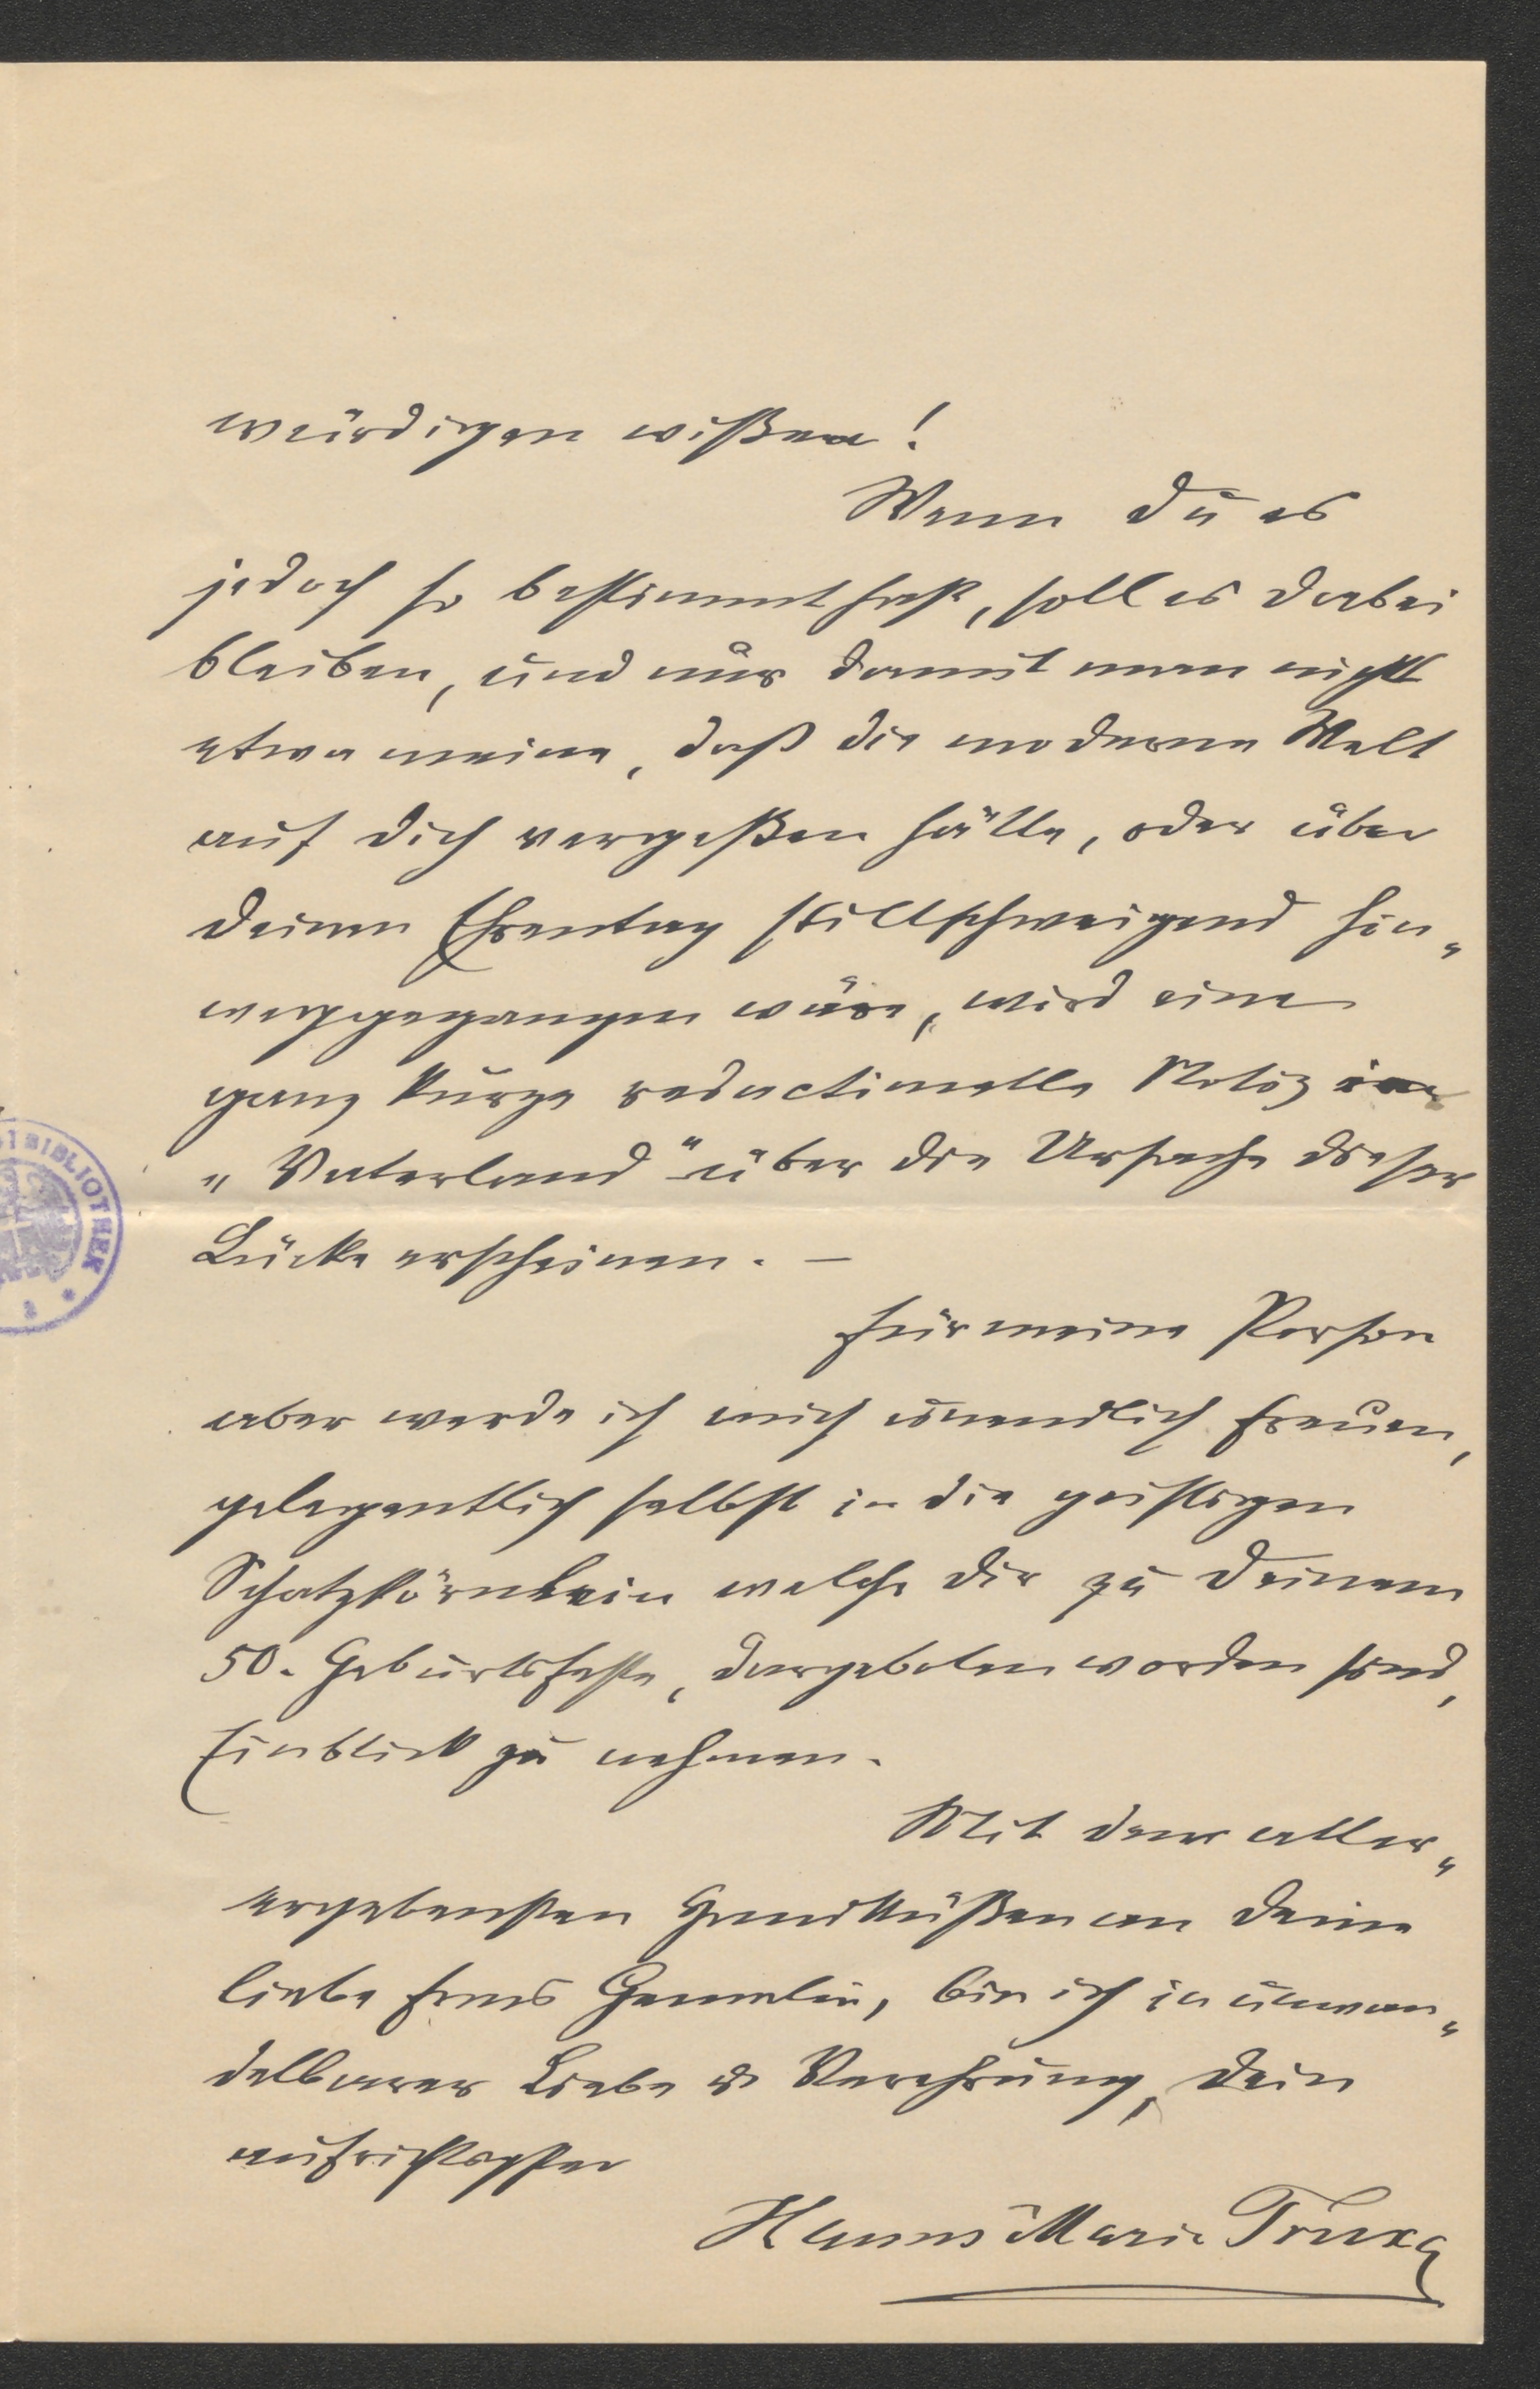 würdigen wißen!
Wenn Du es
jedoch so bestimmt hast, soll es dabei
bleiben, und nur damit man nicht
etwa meine, daß die moderne Welt
auf Dich vergeßen hätte, oder über
Deinen Ehrentag stillschweigend hin„
weggegangen wäre, wird eine
ganz kurze redactionelle Notiz im
„Vaterland" über die Ursache dieser
Lücke erscheinen. —
Für meine Person
aber werde ich mich unendlich freuen,
gelegentlich selbst in die geistigen
Schatzkörnlein welche Dir zu Deinem
50. Geburtsfeste, dargeboten worden sind,
Einblick zu nehmen.
Mit den aller„
ergebensten Handküßen an Deine
liebe Frau Gemalin, bin ich in unwan„
delbarer Liebe & Verehrung, Dein
aufrichtigster
Hanns Maria Truxa
BIBLIOTHEK